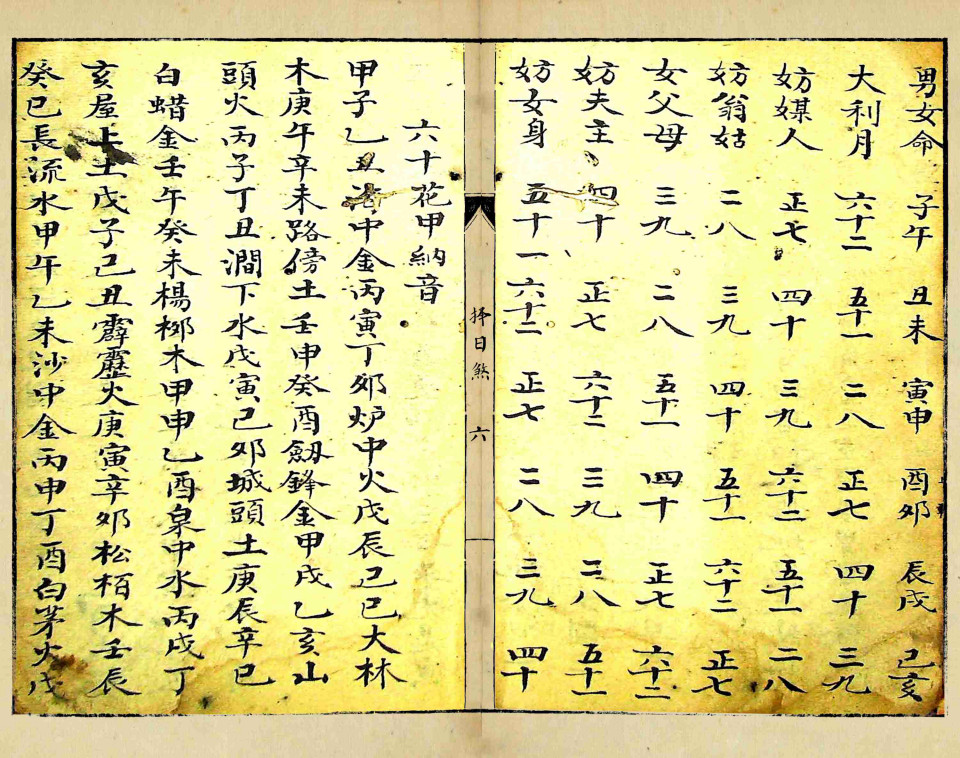 男女命 子午 丑未 寅申 酉夘 辰戌 巳亥
大利月 六十二 五十一 二八 正七 四十 三九
妨媒人 正七 四十 三九 六十二 五十一 二八
妨翁姑 二八 三九 四十 五十一 六十二 正七
女父母 三九 二八 五十一 四十 正七 六十二
妨夫主 四十 正七 六十二 三九 二八 五十一
妨女身 五十一 六十二 正七 二八 三九 四十
择日煞 六
六十花甲納音
甲子乙丑海中金丙寅丁夘炉中火戊辰己巳大林
木庚午辛未路傍土壬申癸酉劔鋒金甲戌乙亥山
頭火丙子丁丑澗下水戊寅己夘城頭土庚辰辛巳
白蜡金壬午癸未楊栁木甲申乙酉泉中水丙戌丁
亥屋上土戊子己丑霹靂火庚寅辛夘松栢木壬辰
癸巳長流水甲午乙未沙中金丙申丁酉白茅火戊